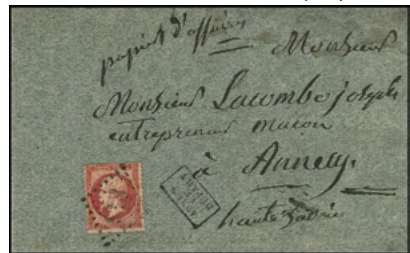 papiers d'affaires
Monsieur
Monsieur Lacombe joseph
entrepreneur macon
à Annecy
haute Savoie